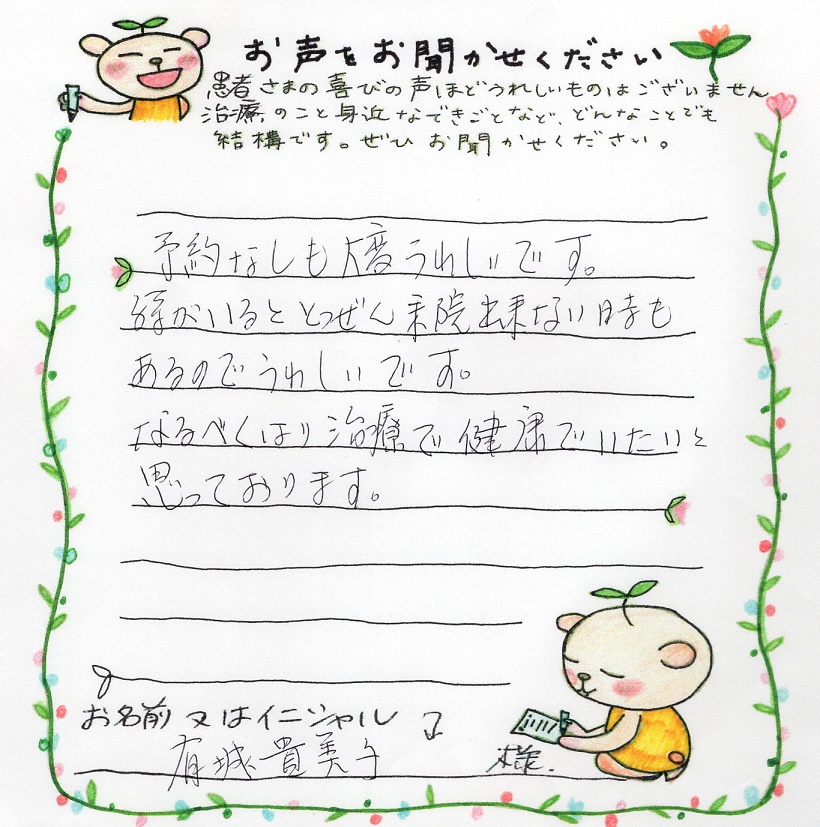 お声をお聞かせください
患者さまの喜びの声ほどうれしいものはございません
治療のこと身近なできごとなど、どんなことでも
結構です。ぜひお聞かせください。
予約なしも大変うれしいです。
孫がいるととつぜん来院出来ない時も
あるのでうれしいです。
なるべくはり治療で健康でいたいと
思っております。
お名前又はイニシャル
有城貴美子 様.